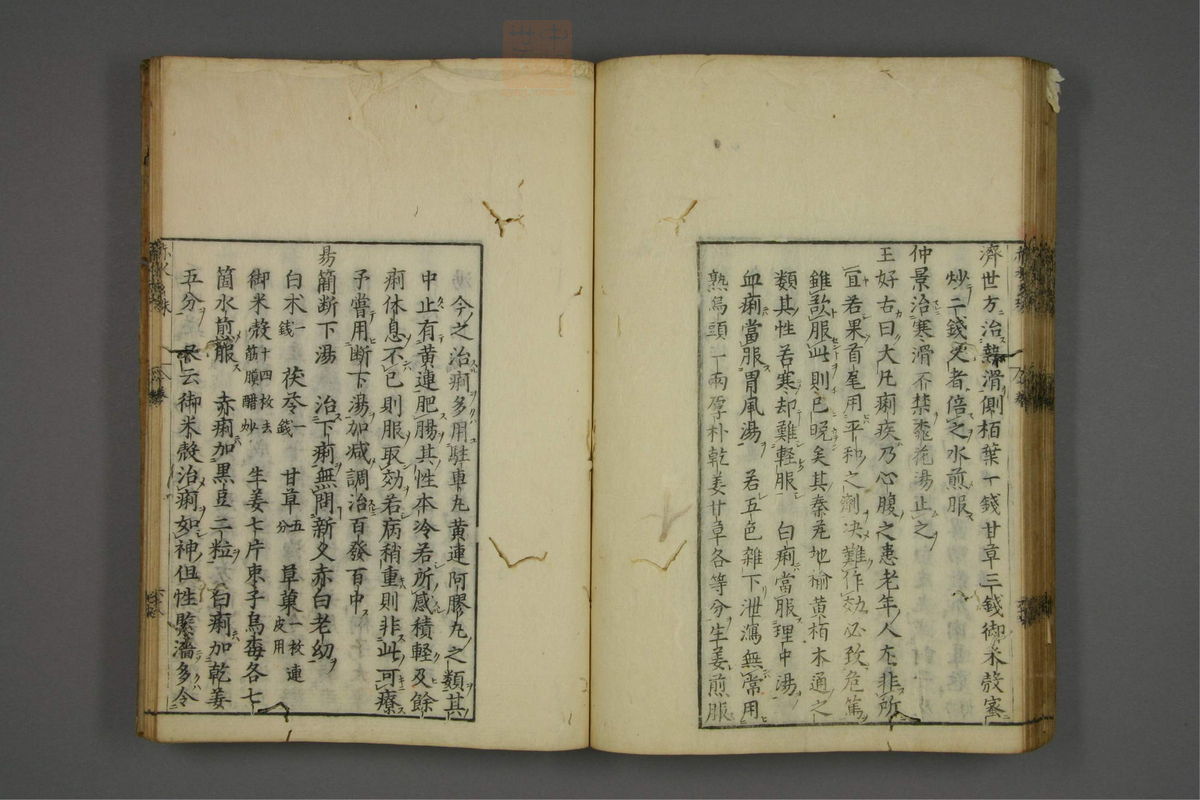 濟世方治熱滑側栢葉一錢甘草三錢御米殼蜜
炒二錢叟者倍之水煎服
仲景治寒滑不禁桃花湯止之
王好古曰大凡痢疾乃心腹之患老年人尤非所
宜若果首尾用平和之劑决難作効必致危篤
雖欲服此則已晚矣其秦艽地榆黄栢木通之
類其性苦寒却難輕服 白痢當服理中湯
血痢當服胃風湯 若五色雜下泄瀉無常用
熟烏頭一兩厚朴乾姜甘草各等分生姜煎服
今之治痢多用駐車丸黄連阿膠丸之類其
中止有黄連肥腸其性本冷若所感積輕及餘
痢休息不已則服取効若病稍重則非此可療
予嘗用断下湯加减調治百發百中
易簡断下湯 治下痢無問新久赤白老幼
白朮一錢 茯苓一錢 甘草五分 草菓一枚連皮用
御米殼十四枚去筋膜醋炒 生姜七片枣子烏梅各七
箇水煎服 赤痢加黒豆二粒 白痢加乾姜
五分 又云御米殼治痢如神但性緊濇多令